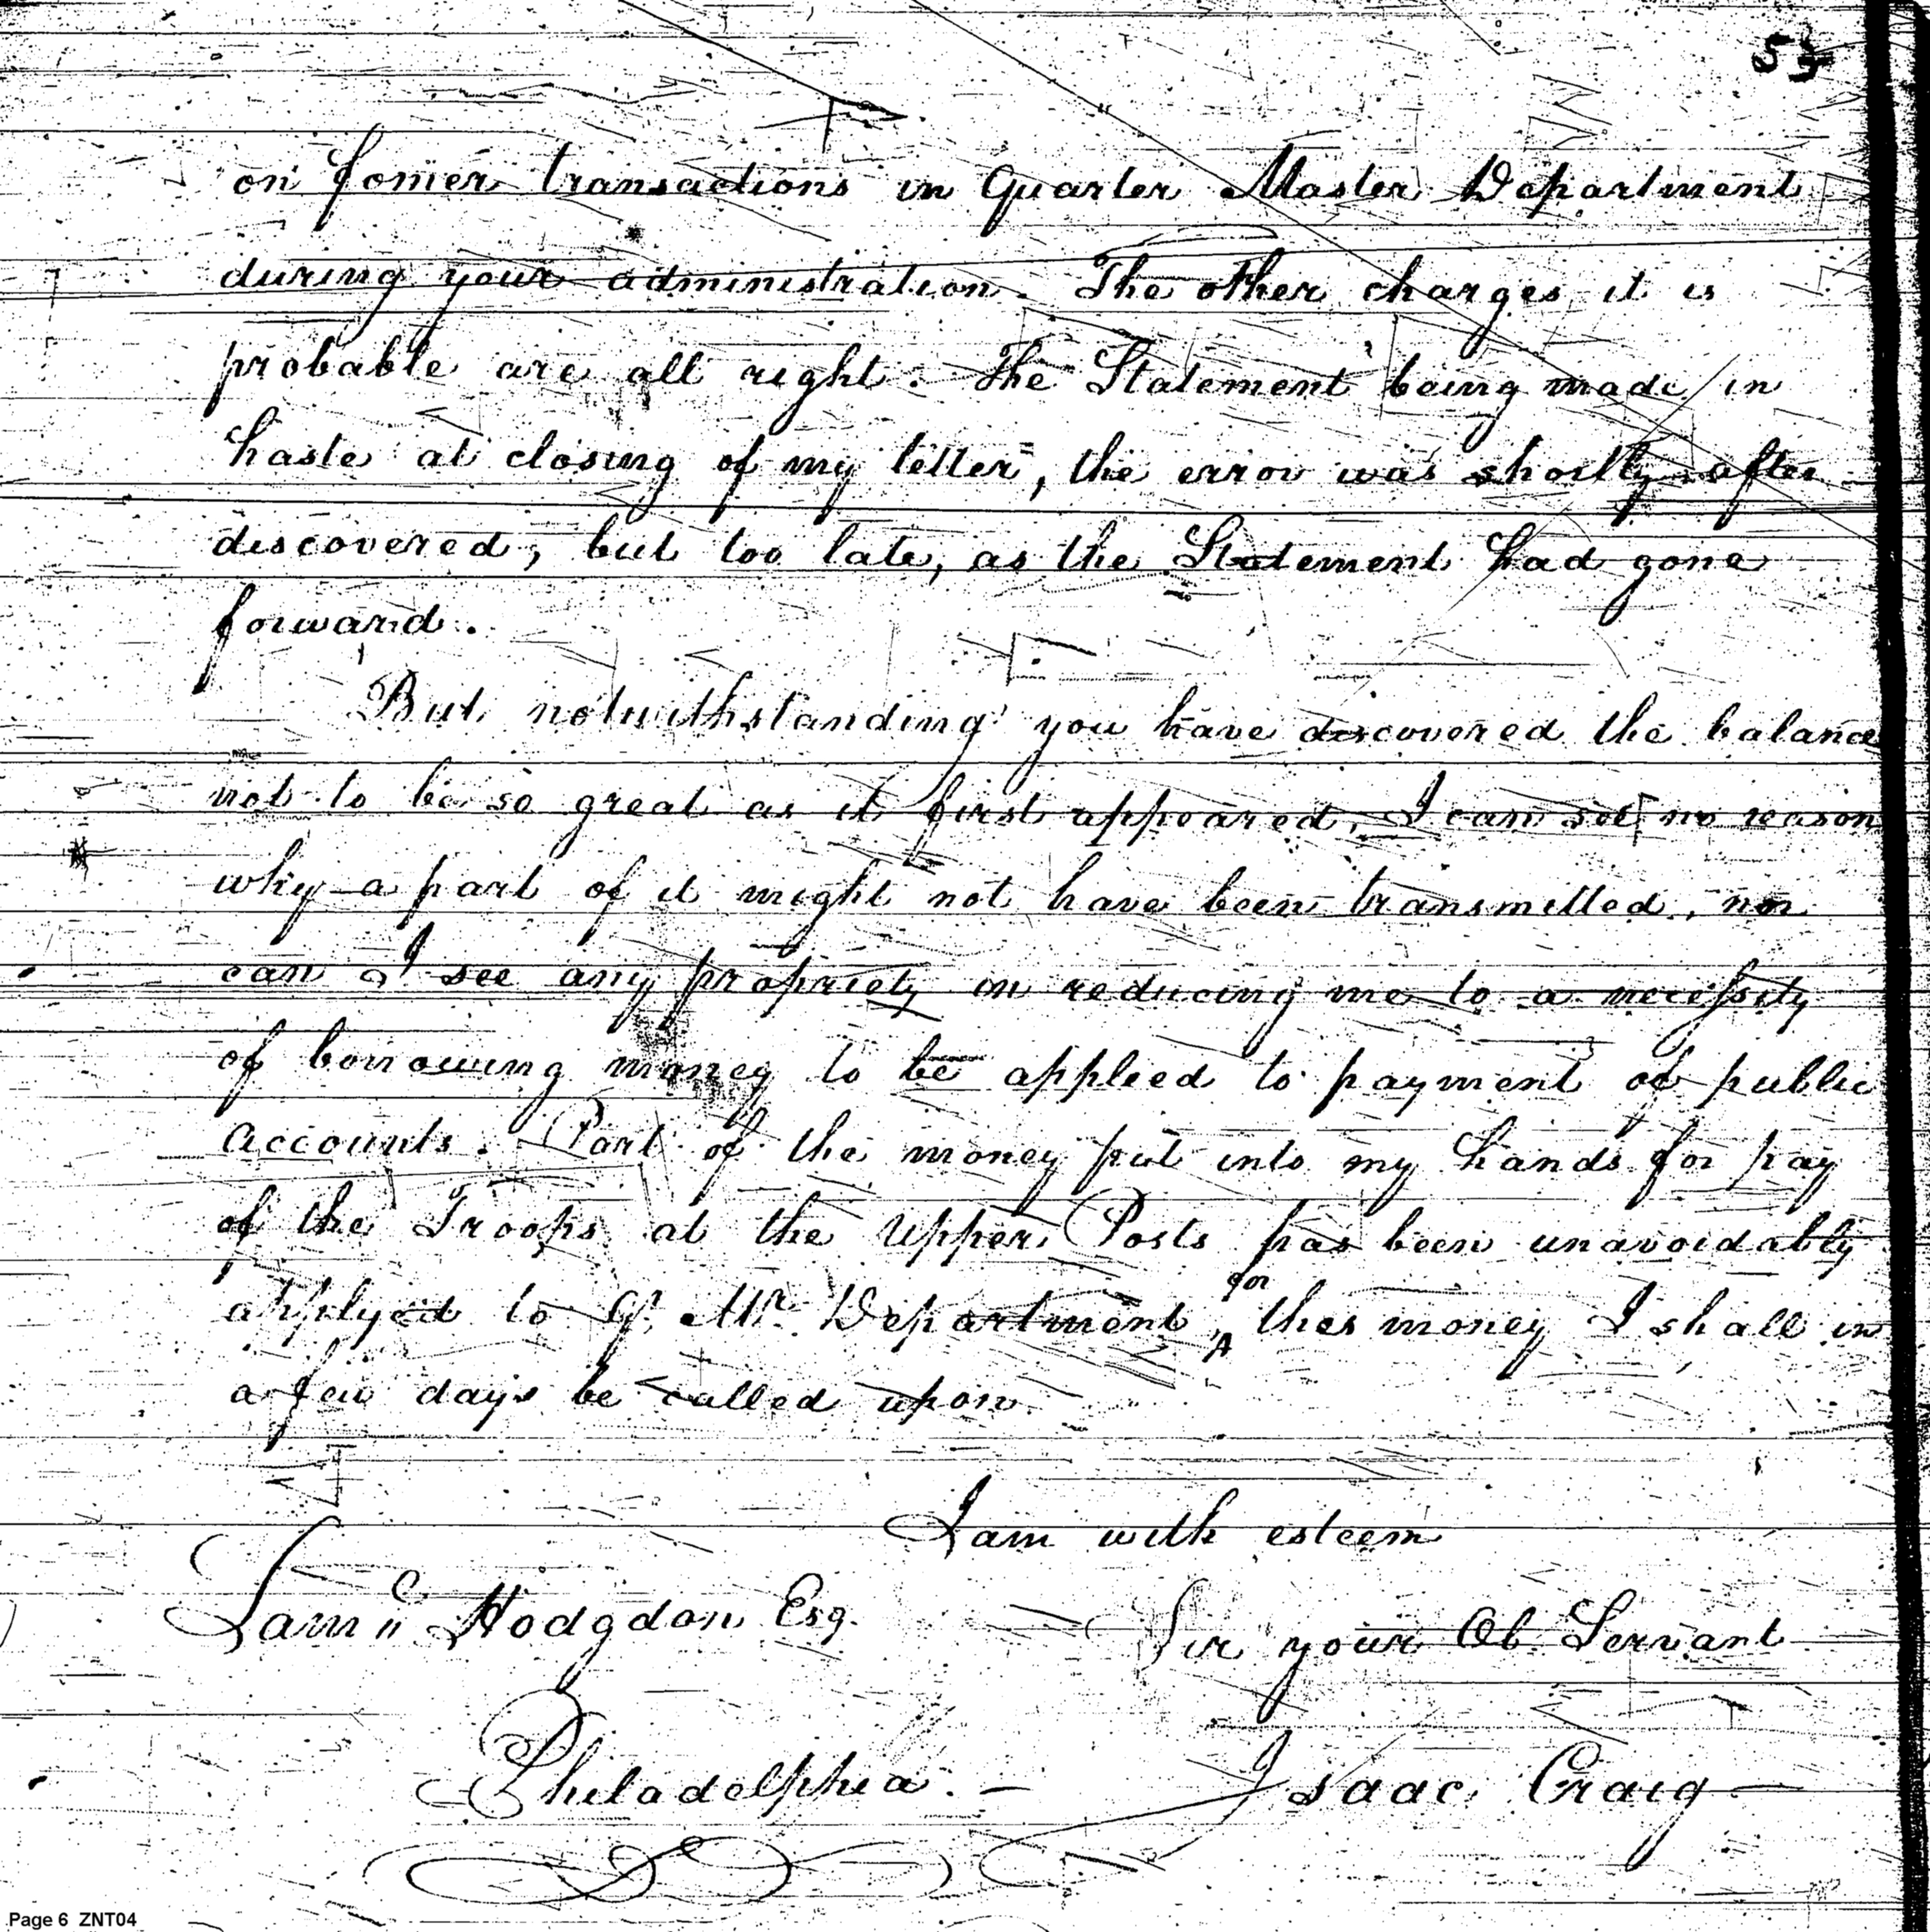 53
on former transactions in Quarter Master Department
during your administration. The other charges it is
probable are all right. The Statement being made in
haste at closing of my letter, the error was shortly after
discovered, but too late, as the Statement had gone
forward.
But notwithstanding you have discovered the balance
not to be so great as it first appeared, I can see no reason
why a part of it might not have been transmitted, nor
can I see any propriety in reducing me to a necessity
of borrowing money to be applied to payment of public
accounts. Part of the money put into my hands for pay
of the Troops at the Upper Posts has been unavoidably
for
applyed to Q. Mr. Department, ^ this money I shall in
a few days be called upon.
I am with esteem
Sam'l Hodgdon Esq.
Sir your Ob. Servant
Philadelphia. —
Isaac Craig —
Page 6 ZNT04